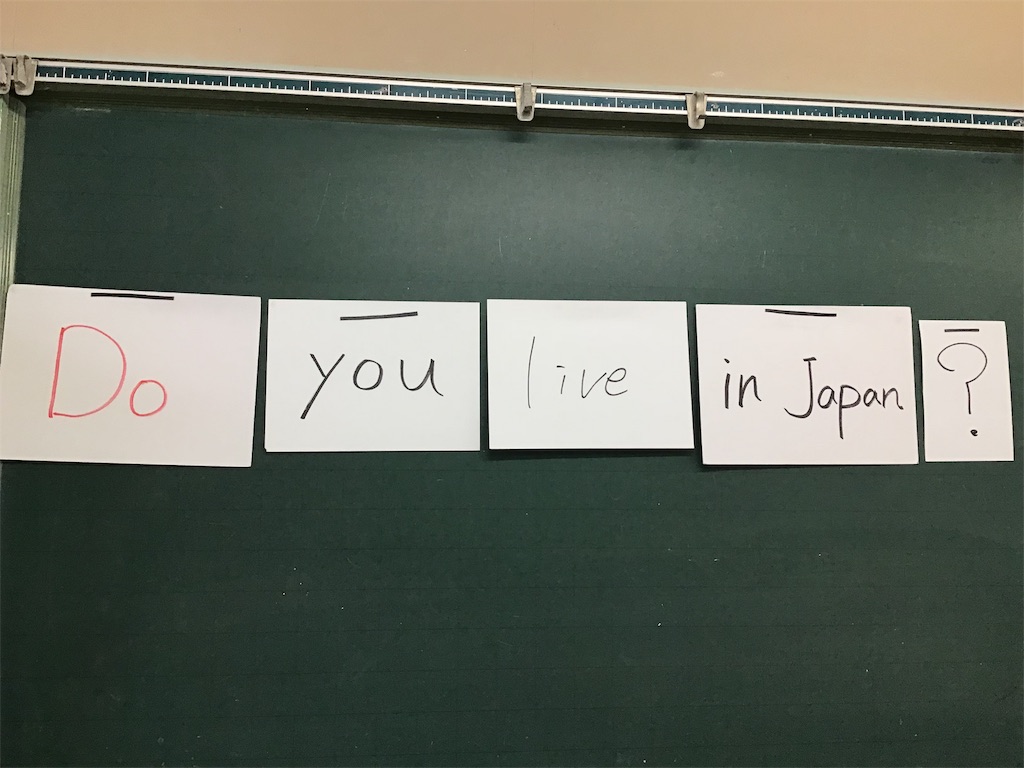 Do you live in Japan ?